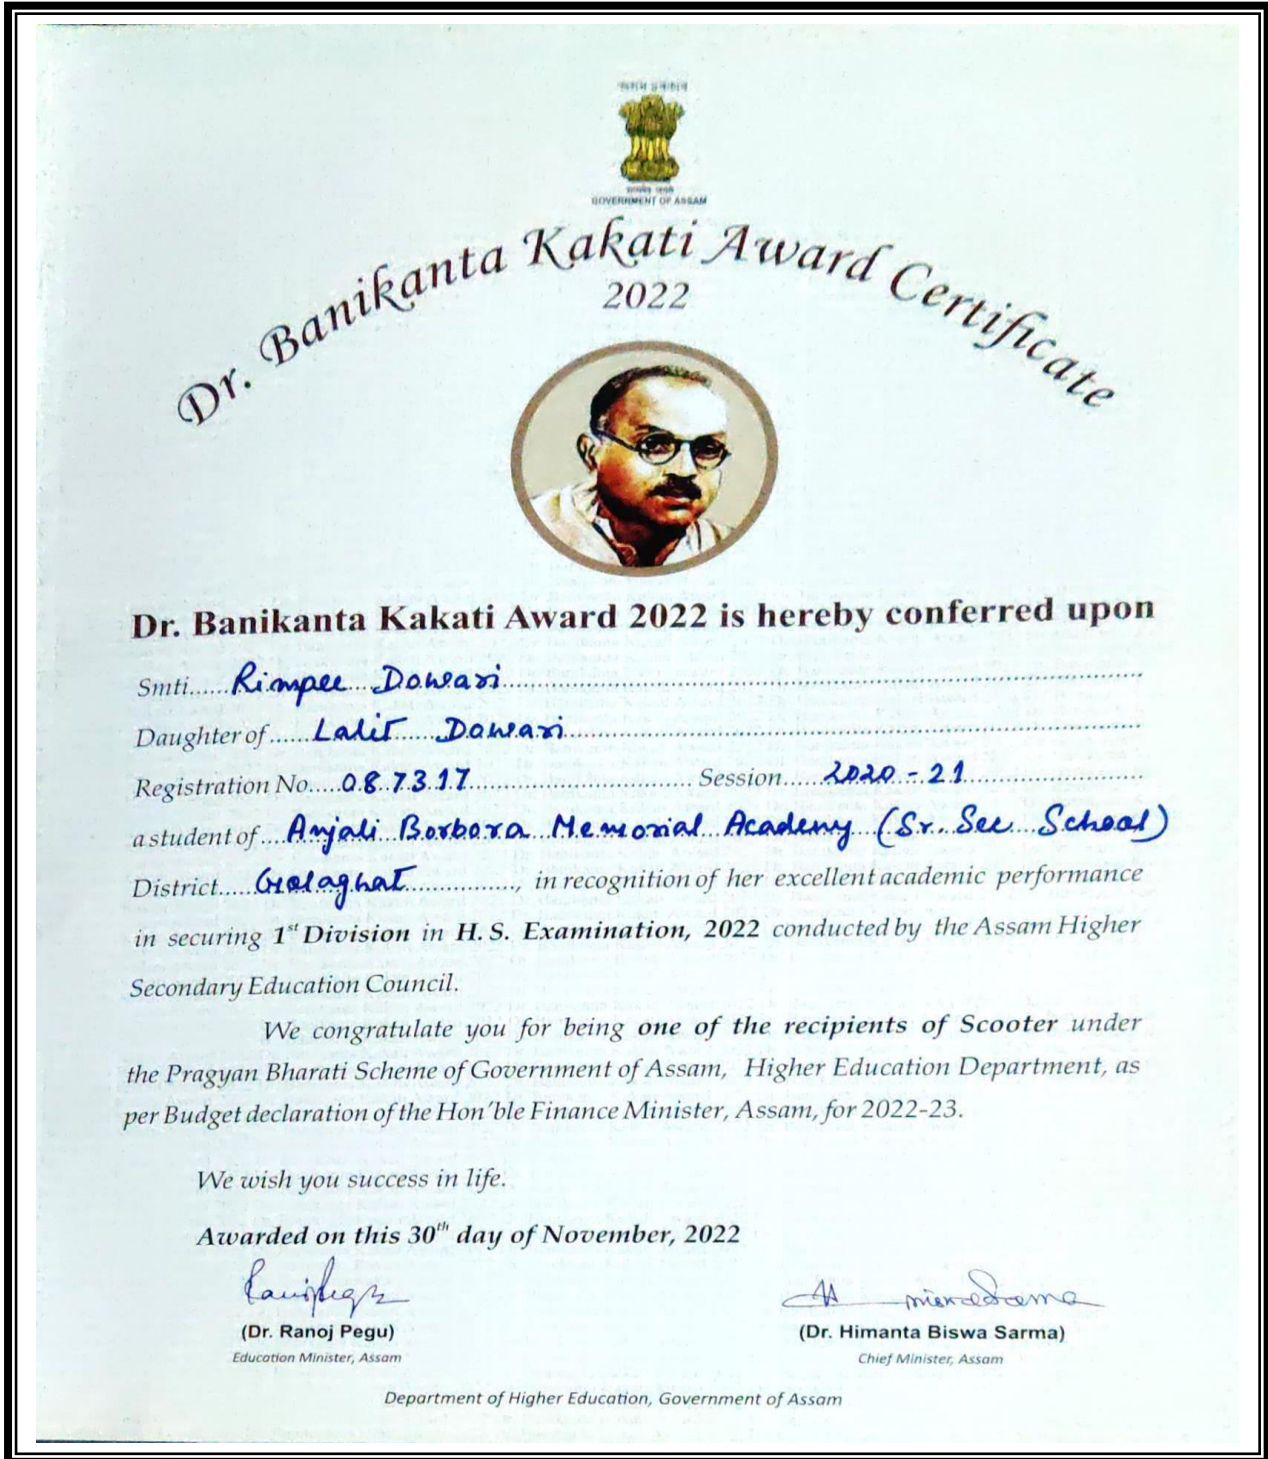 GOVERNMENT OF ASSAM
Dr. Banikanta Kakati Award Certificate
2022
Dr. Banikanta Kakati Award 2022 is hereby conferred upon
Smti......Rimpee Dowari
Daughter of......Lalit Dowari
Registration No.....087317 Session......2020-21
a student of....Anjali Borbora Memorial Academy (Sr. Sec School)
District.....Golaghat, in recognition of her excellent academic performance
in securing 1st Division in H. S. Examination, 2022 conducted by the Assam Higher
Secondary Education Council.
We congratulate you for being one of the recipients of Scooter under
the Pragyan Bharati Scheme of Government of Assam, Higher Education Department, as
per Budget declaration of the Hon'ble Finance Minister, Assam, for 2022-23.
We wish you success in life.
Awarded on this 30th day of November, 2022
(Dr. Ranoj Pegu) (Dr. Himanta Biswa Sarma)
Education Minister, Assam Chief Minister, Assam
Department of Higher Education, Government of Assam